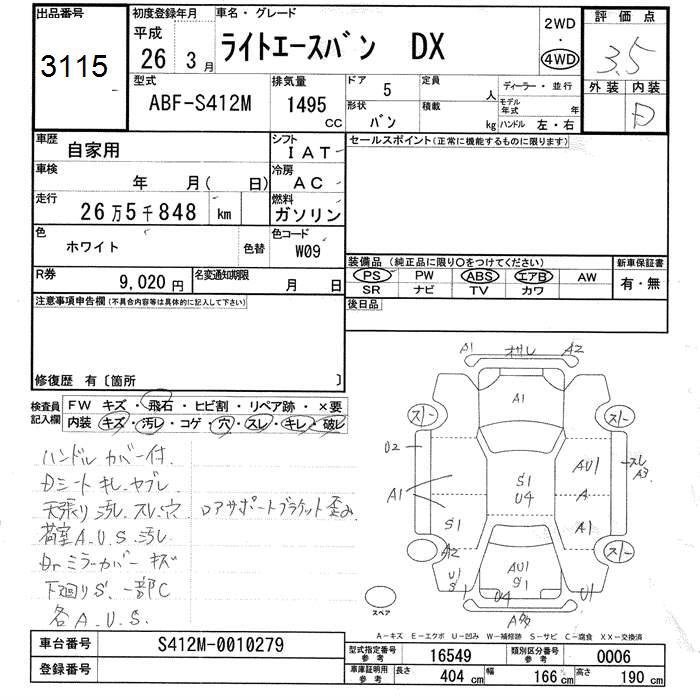 出品番号
3115
初度登録年月
平成
26 3月
車名・グレード
ライトエースバン DX
2WD
・
4WD
評価点
3.5
外装 内装
D
型式
ABF-S412M
排気量
1495
CC
ドア
5
定員
人
形状
バン
積載
kg
ディーラー・並行
モデル年式
年
ハンドル 左・右
車歴
自家用
シフト
IAT
車検
年 月( 日)
冷房
AC
走行
26万5千848 km
燃料
ガソリン
色
ホワイト
色替
色コード
W09
R券
9,020円
名変通知期限
月 日
セールスポイント(正常に機能するものに限ります)
装備品(純正品に限り○をつけてください)
新車保証書
PS PW ABS エアB AW
有・無
SR ナビ TV カワ
後日品
注意事項申告欄(不具合内容等は具体的に記入して下さい)
修復歴 有〔箇所 〕
検査員記入欄
FW キズ・飛石・ヒビ割・リペア跡・×要
内装 キズ・汚レ・コゲ・穴・スレ・キレ・破レ
ハンドルカバー付.
Dシートキレ.ヤブレ
天張り汚レ.スレ.穴 ロアサポートブラケット歪み
荷室A.U.S.汚レ
Drミラーカバーキズ
下廻りS.一部C
各A.U.S.
A1 オサレ A2
A1
スレー
スレー
U2
A1
S1
U4
AU1
A
A1
スレ
A3
S1
A2
U1
S1
AU1
S1
U4
U1
スレー
A多
スペア
A-キズ E-エクボ U-凹み W-補修跡 S-サビ C-腐食 XX-交換済
車台番号
S412M-0010279
登録番号
型式指定番号
参考
16549
類別区分番号
参考
0006
車庫証明用
参考
長さ
404 cm
幅
166 cm
高さ
190 cm